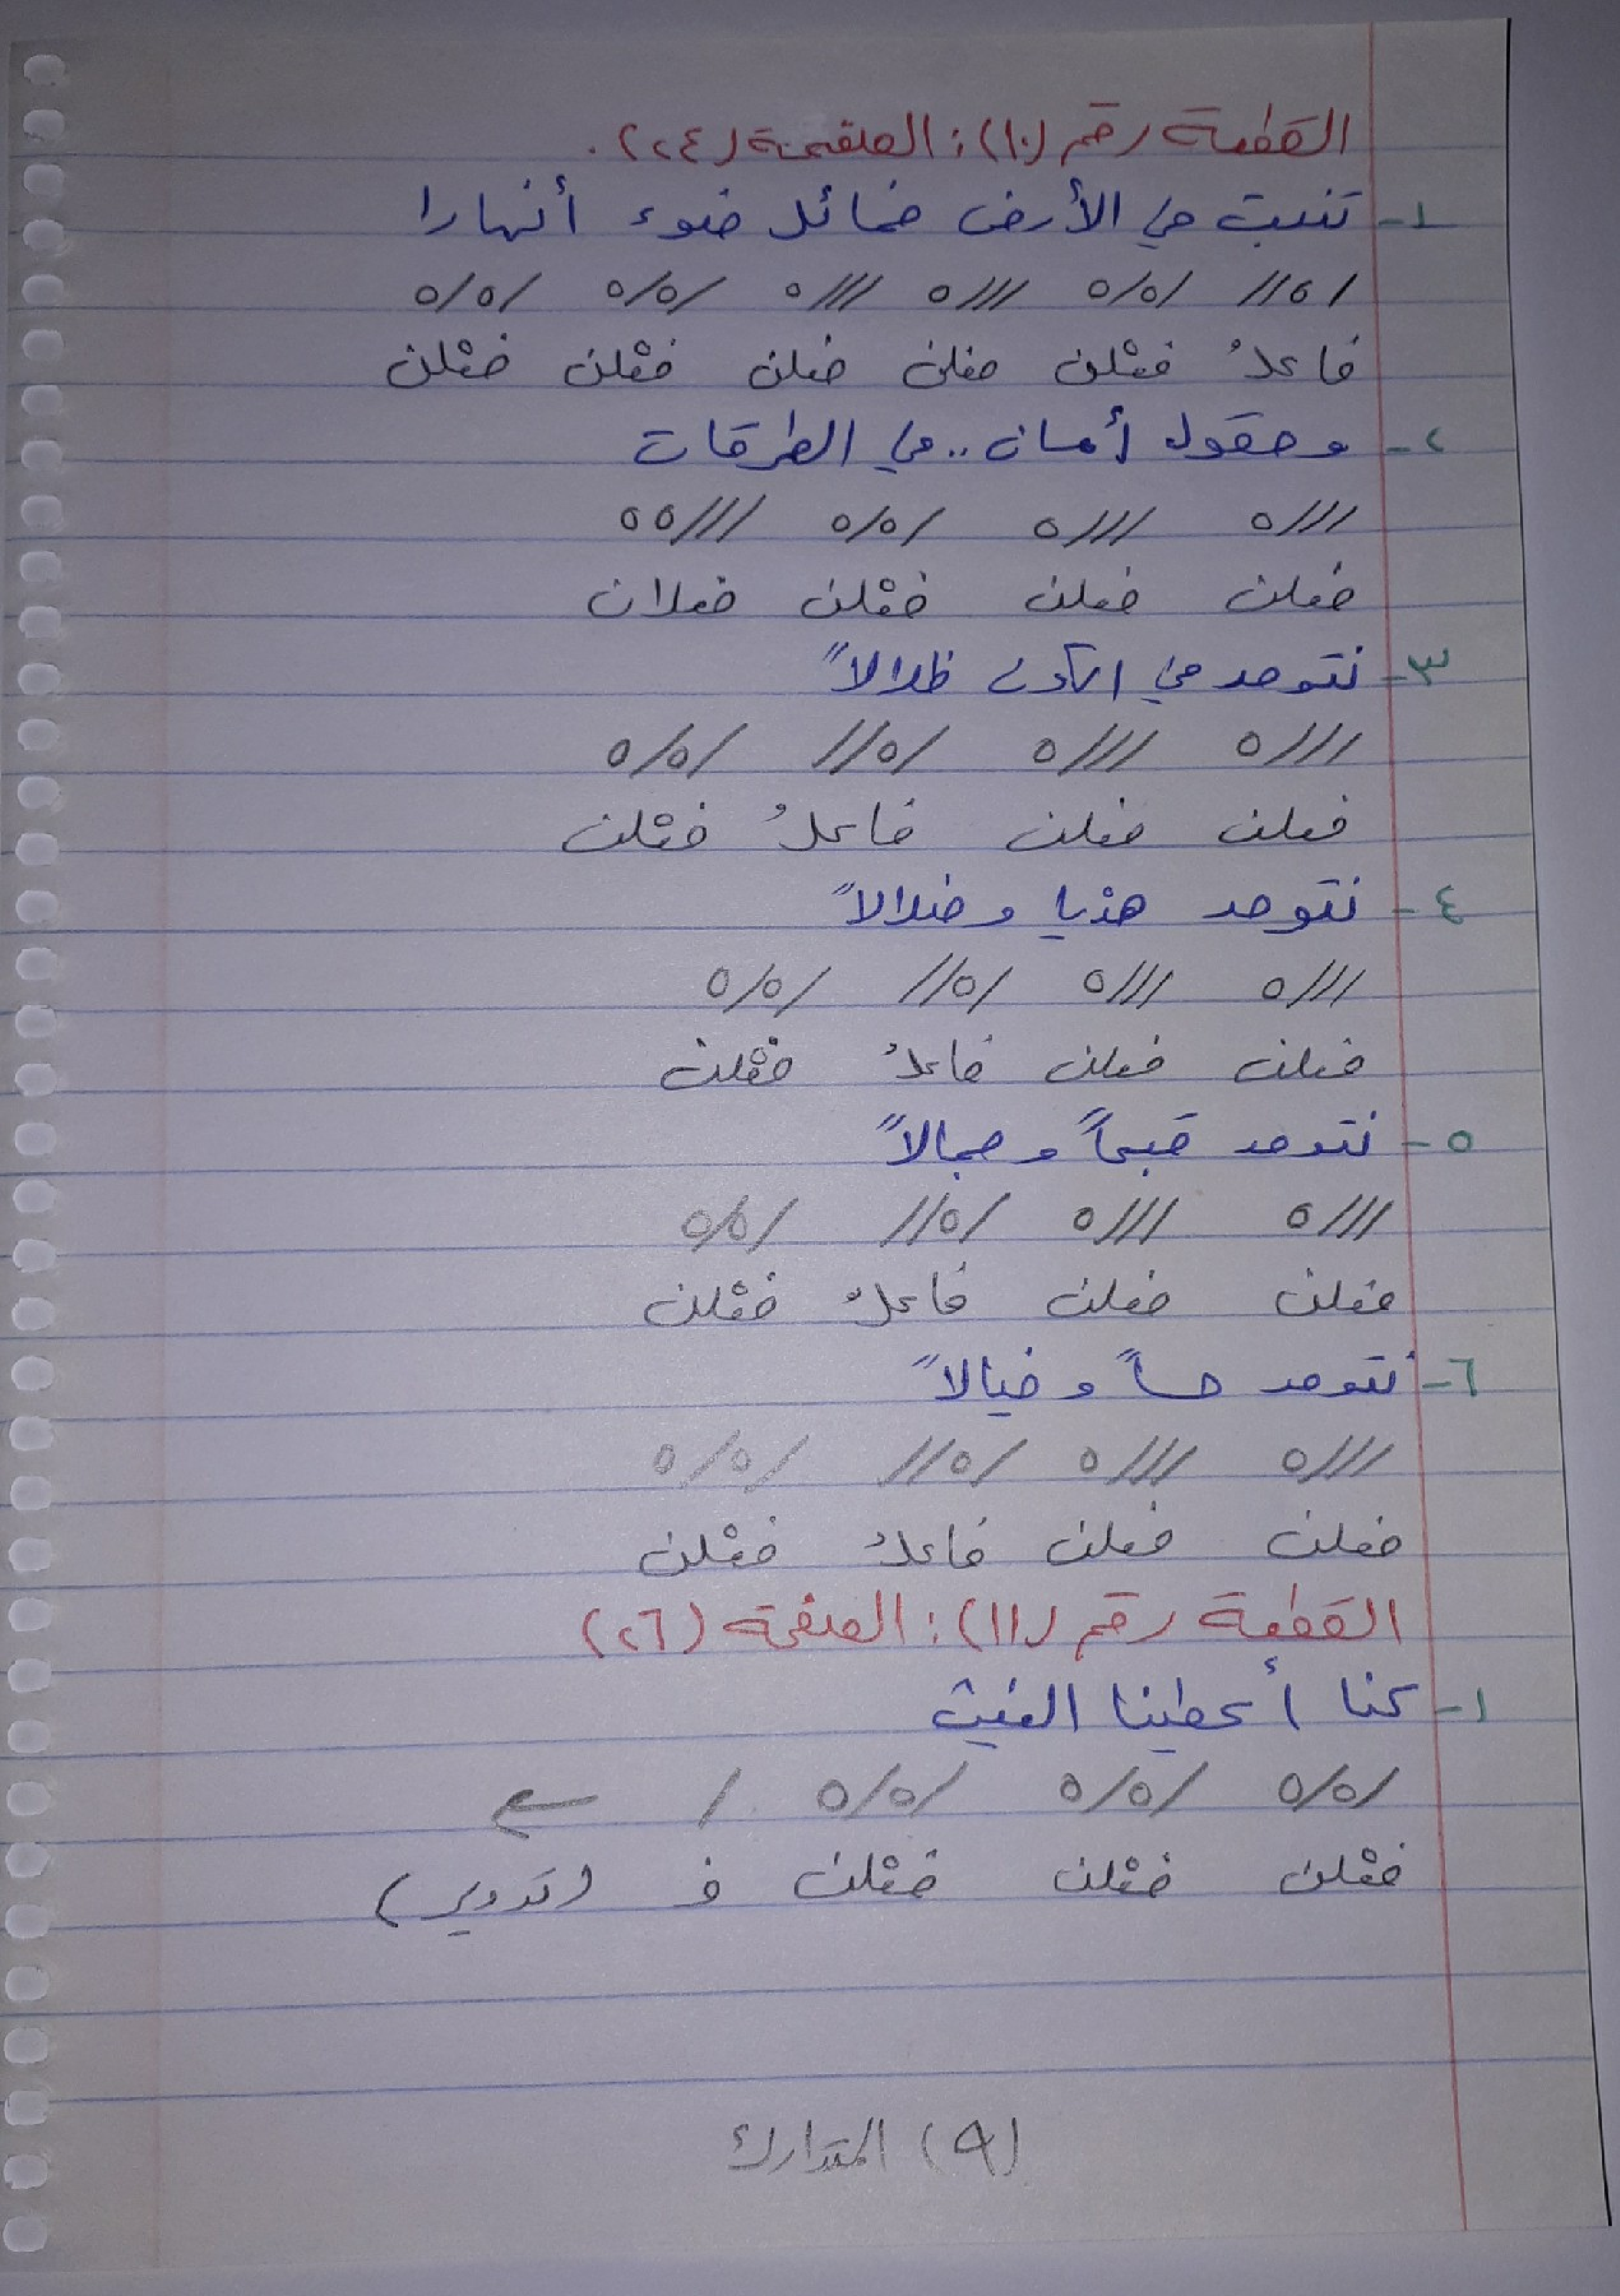 القطعة رقم (١٠): الصفحة (٢٤).
١- تنبت في الأرض خمائل ضوء أنهارا
/٥// /٥/٥ ///٥ ///٥ /٥/٥ /٥/٥
فاعلُ فعْلن فعلن فعلن فعْلن فعْلن
٢- وحقول أمان.. في الطرقات
///٥ ///٥ /٥/٥ ///٥٥
فعلن فعلن فعْلن فعلان
٣- نتوحد في الكون ظلالاً
///٥ ///٥ /٥// /٥/٥
فعلن فعلن فاعلُ فعْلن
٤- نتوحد هديا وضلالاً
///٥ ///٥ /٥// /٥/٥
فعلن فعلن فاعلُ فعْلن
٥- نتوحد قبحاً وجمالاً
///٥ ///٥ /٥// /٥/٥
فعلن فعلن فاعلُ فعْلن
٦- نتوحد حساً وخيالاً
///٥ ///٥ /٥// /٥/٥
فعلن فعلن فاعلُ فعْلن
القطعة رقم (١١): الصفحة (٢٦)
١- كنا أعطينا الغيث
/٥/٥ /٥/٥ /٥/٥ /
فعْلن فعْلن فعْلن ف (تدوير)
(٩) المتدارك